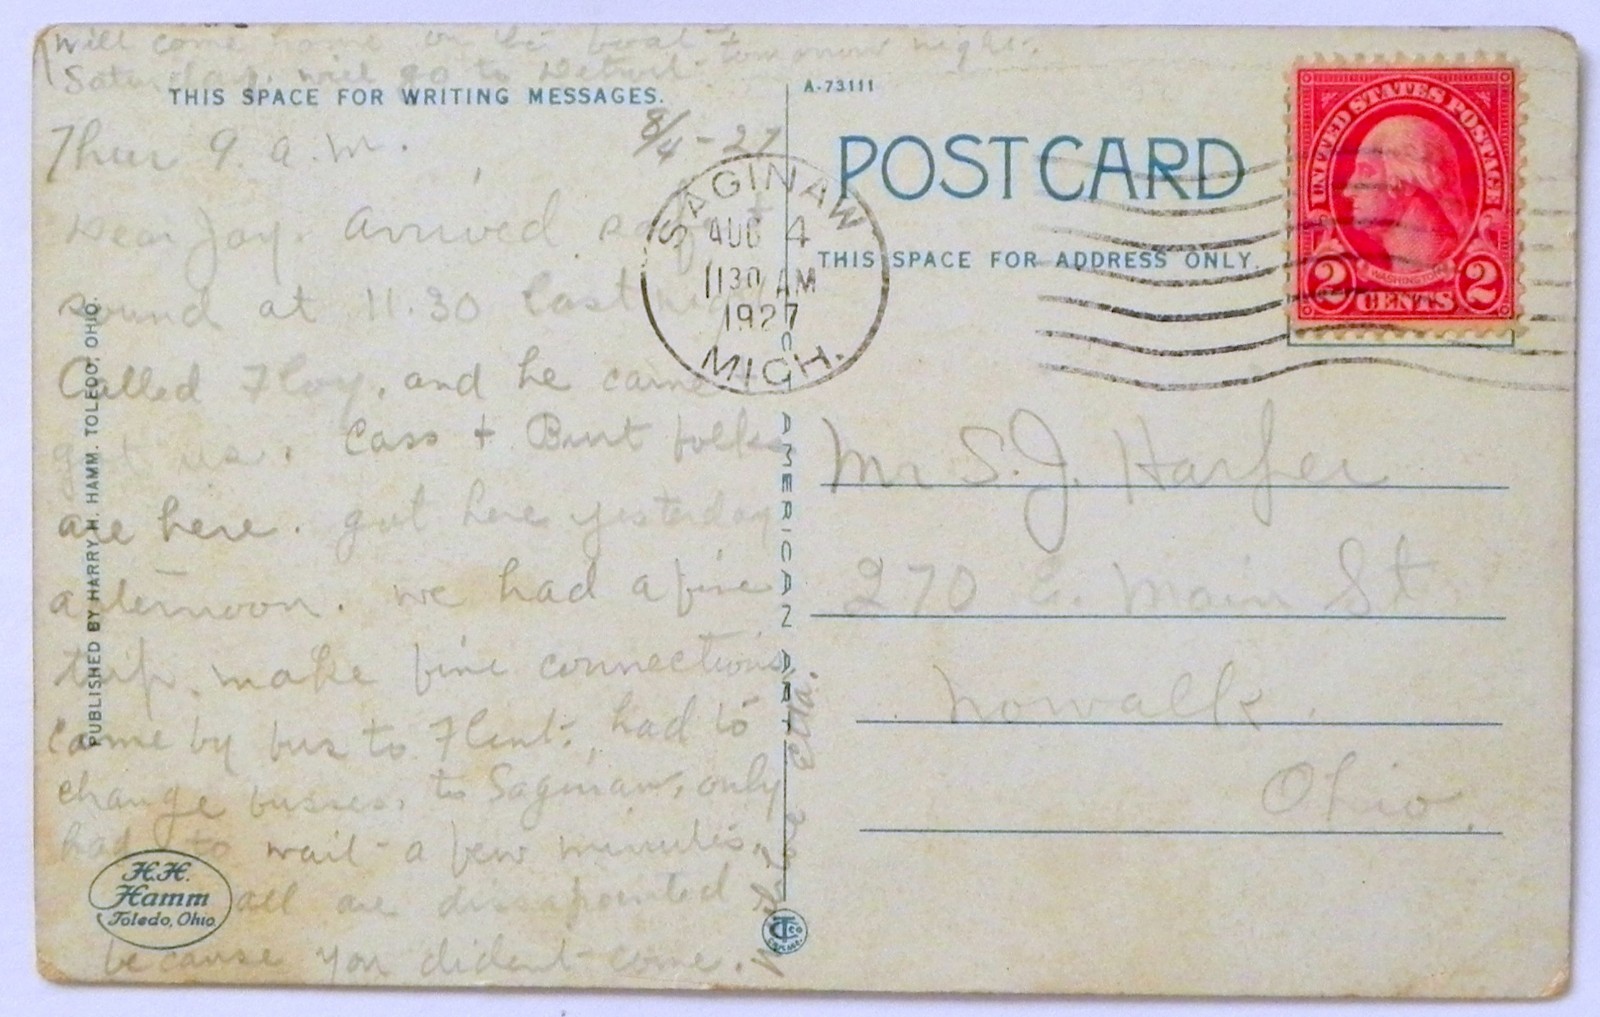 will come home on the boat tomorrow night.
Saturday. will go to Detroit
THIS SPACE FOR WRITING MESSAGES.
Thur 9. a.m. 8/4-27
Dear Joy. Arrived safe +
sound at 11.30 last night
Called Floy. and he came +
got us. Cass + Burt folks
are here. got here yesterday
afternoon. we had a fine
trip. make fine connections
came by bus to Flint. had to
change busses, to Saginaw, only
had to wait a few minutes.
all are dissapointed
because you dident come.
Etta.
PUBLISHED BY HARRY H. HAMM. TOLEDO, OHIO.
H.H.
Hamm
Toledo, Ohio
A-73111
POST CARD
THIS SPACE FOR ADDRESS ONLY.
SAGINAW
AUG 4
1130 AM
1927
MICH.
UNITED STATES POSTAGE
WASHINGTON
2 CENTS 2
AMERICAN ART
Mr S. J. Harfer
270 E. Main St
Nowalk.
Ohio.